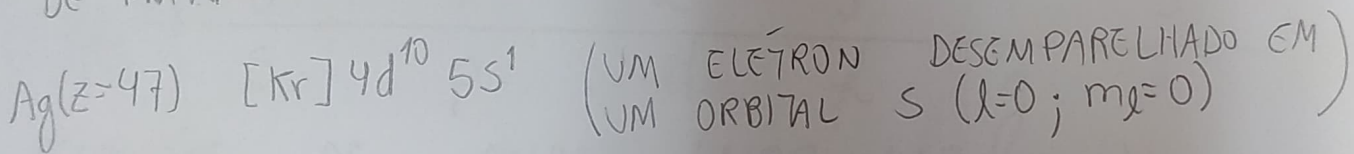 Ag(z=47) [Kr] 4d¹⁰ 5s¹ (UM ELÉTRON DESEMPARELHADO EM
UM ORBITAL S (l=0; mₗ=0))